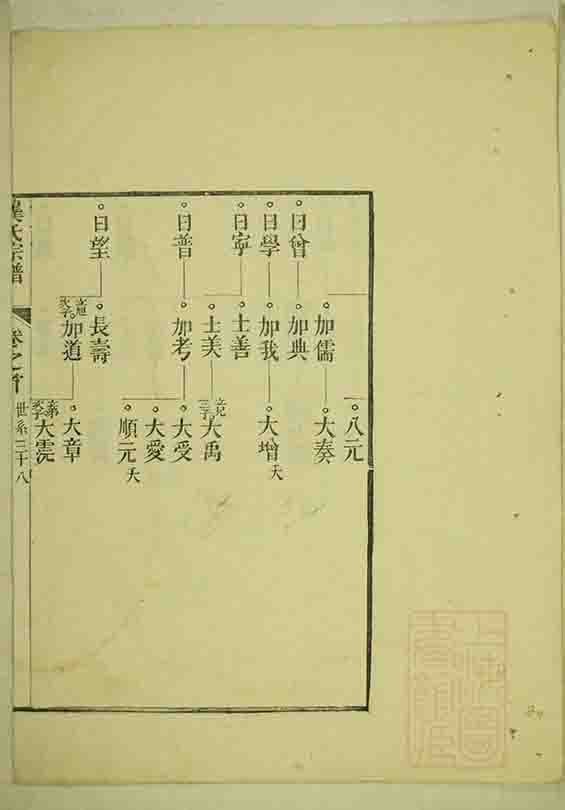 八元
加儒
大奏
日曾
加典
日學
加我
大增 夭
日寧
士善
士美
大禹
日普
加考
大受
大愛
順元 夭
日望
長壽
加道
大章
氏宗譜
卷之首
世系三十八
上海圖書館藏